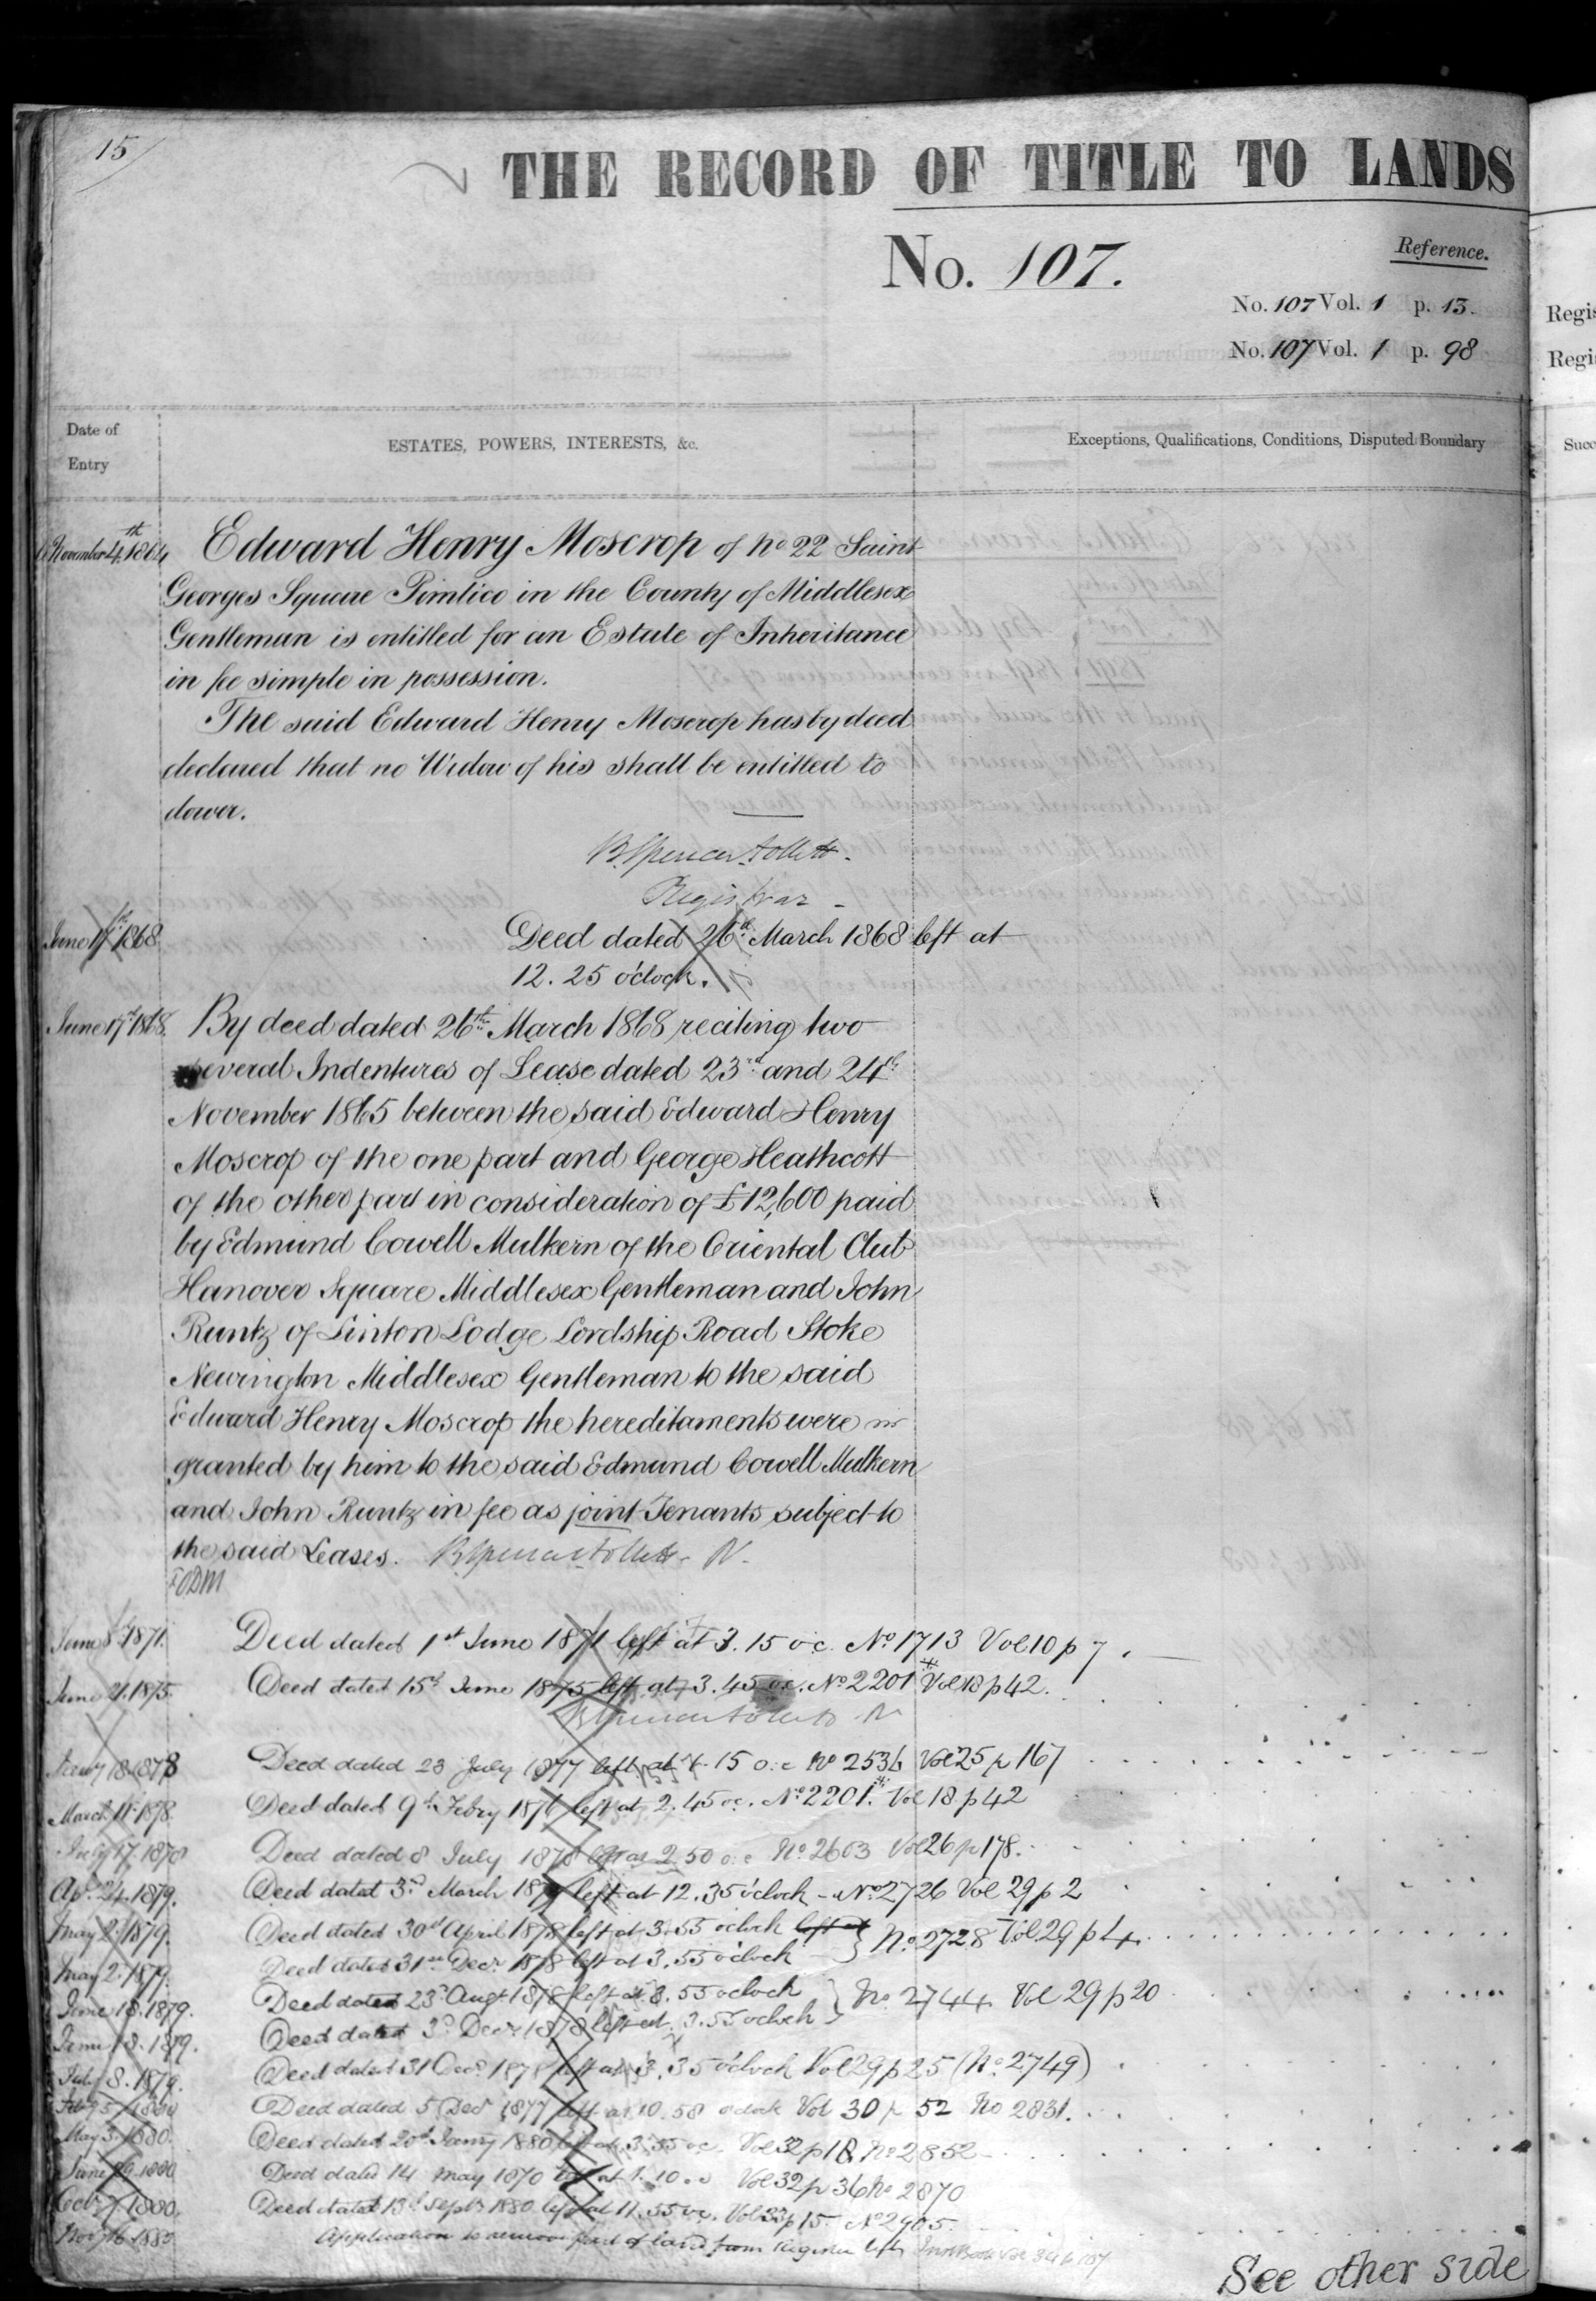 15
THE RECORD OF TITLE TO LANDS
No. 107.
Reference.
No. 107 Vol. 1 p. 13.
No. 107 Vol. 1 p. 98
Regis
Regi
Date of
Entry
ESTATES, POWERS, INTERESTS, &c.
Exceptions, Qualifications, Conditions, Disputed Boundary
Succ
November 4th 1864 Edward Henry Moscrop of No 22 Saint
Georges Square Pimlico in the County of Middlesex
Gentleman is entitled for an Estate of Inheritance
in fee simple in possession.
The said Edward Henry Moscrop has by deed
declared that no Widow of his shall be entitled to
dower.
B. Spencer Follett.
Registrar
June 17th 1868 Deed dated 26th March 1868 left at
12.25 o'clock.
June 17th 1868. By deed dated 26th March 1868 reciting two
several Indentures of Lease dated 23rd and 24th
November 1865 between the said Edward Henry
Moscrop of the one part and George Heathcott
of the other part in consideration of £12,600 paid
by Edmund Cowell Mulkern of the Oriental Club
Hanover Square Middlesex Gentleman and John
Runtz of Linton Lodge Lordship Road Stoke
Newington Middlesex Gentleman to the said
Edward Henry Moscrop the hereditaments were
granted by him to the said Edmund Cowell Mulkern
and John Runtz in fee as joint Tenants subject to
the said Leases. B Spencer Follett. R.
June 8th 1871. Deed dated 1st June 1871 left at 3.15 o.c. No. 1713 Vol 10 p 7.
June 21. 1875. Deed dated 15th June 1875 left at 3.45 o.c. No 2201 Vol 18 p 42.
B Spencer Follett R
18 1878 Deed dated 23 July 1877 left at 15 o.c No 2536 Vol 25 p 167
March 11th 1878 Deed dated 9th Febry 1876 left at 2.45 o.c. No 2201. Vol 18 p 42
July 17. 1878 Deed dated 8 July 1878 left at 2.50 o.c No. 2603 Vol 26 p 178.
Apl. 24. 1879. Deed dated 3rd March 1879 left at 12.35 o'clock - No. 2726 Vol 29 p 2
May 2. 1879. Deed dated 30th April 1878 left at 3.55 o'clock left at } No. 2728 Vol 29 p 4.
May 2. 1879. Deed dated 31st Decr. 1878 left at 3.55 o'clock
June 18. 1879. Deed dated 23rd Augt. 1878 left at 3.55 o'clock } No. 2744 Vol 29 p 20
June 18. 1879. Deed dated 3rd Decr 1878 left at 3.55 o'clock
July 8. 1879. Deed dated 31 Decr 1878 left at 3.35 o'clock Vol 29 p 25 (No. 2749)
Feby 5 1880 Deed dated 5 Decr 1877 left at 10.58 o'clock Vol 30 p 52 No 2831.
May 3. 1880. Deed dated 20th Jany 1880 left at 3.55 o.c. Vol 32 p 18 No 2852
June 1880 Deed dated 14 May 1870 left at 1.10 o.c Vol 32 p 36 No 2870
Octr 7. 1880. Deed dated 13th Septr 1880 left at 11.55 o.c. Vol 33 p 15. No 2905.
Nov 16 1880 Application to remove part of land from Register left
See other side